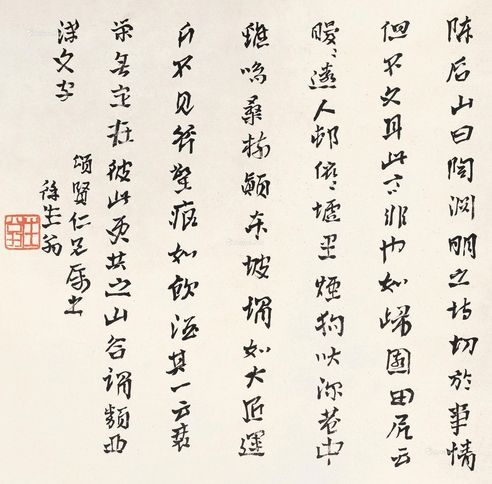 陈后山曰陶渊明之诗切於事情
但不文耳此言非也如归园田居云
暧〻远人邨依〻墟里烟狗吠深巷中
鸡鸣桑树颠东坡谓如大匠运
斤不见斧凿痕如饮酒其一云衰
荣无定在彼此更共之山谷谓类西
汉文字
颂贤仁兄属书
徐生翁